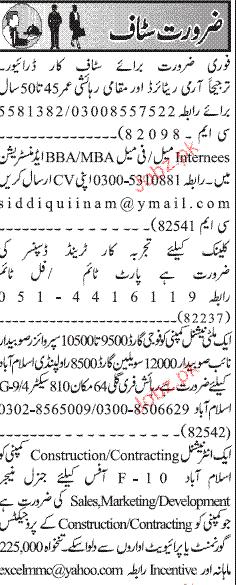 ضرورت سٹاف
فوری ضرورت برائے سٹاف کار ڈرائیور۔
ترجیحاً آرمی ریٹائرڈ اور مقامی رہائشی عمر 45 تا 50 سال
برائے رابطہ 5581382/03008557522
سی ایم ۔ 82098)
Internees میل/فی میل BBA/MBA ایڈمنسٹریشن
میں۔ رابطہ 5310881-0300 اپنی CV ارسال کریں
siddiquiinam@ymail.com
سی ایم 82541)
کلینک کیلئے تجربہ کار ٹرینڈ ڈسپنسر کی
ضرورت ہے پارٹ ٹائم / فل ٹائم
رابطہ 051-4416119
(82237)
ایک ملٹی نیشنل کمپنی کو فوجی گارڈ 9500 تا 10500 سپروائزر صوبیدار
نائب صوبیدار 12000 سویلین گارڈ 8500 راولپنڈی اسلام آباد
کیلئے ضرورت ہے۔ رہائش فری گلی 64 مکان 810 سیکٹر G-9/4
اسلام آباد 0302-8565009/0300-8506629
(82542)
ایک انٹرنیشنل Construction/Contracting کمپنی کو
اسلام آباد F-10 آفس کیلئے جنرل منیجر
Sales,Marketing/Development کی ضرورت ہے
جو کمپنی کو Construction/Contracting کے پروجیکٹس
گورنمنٹ یا پرائیویٹ اداروں سے دلوا سکے۔ تنخواہ 225,000
ماہانہ اور Incentive رابطہ excelmmc@yahoo.com